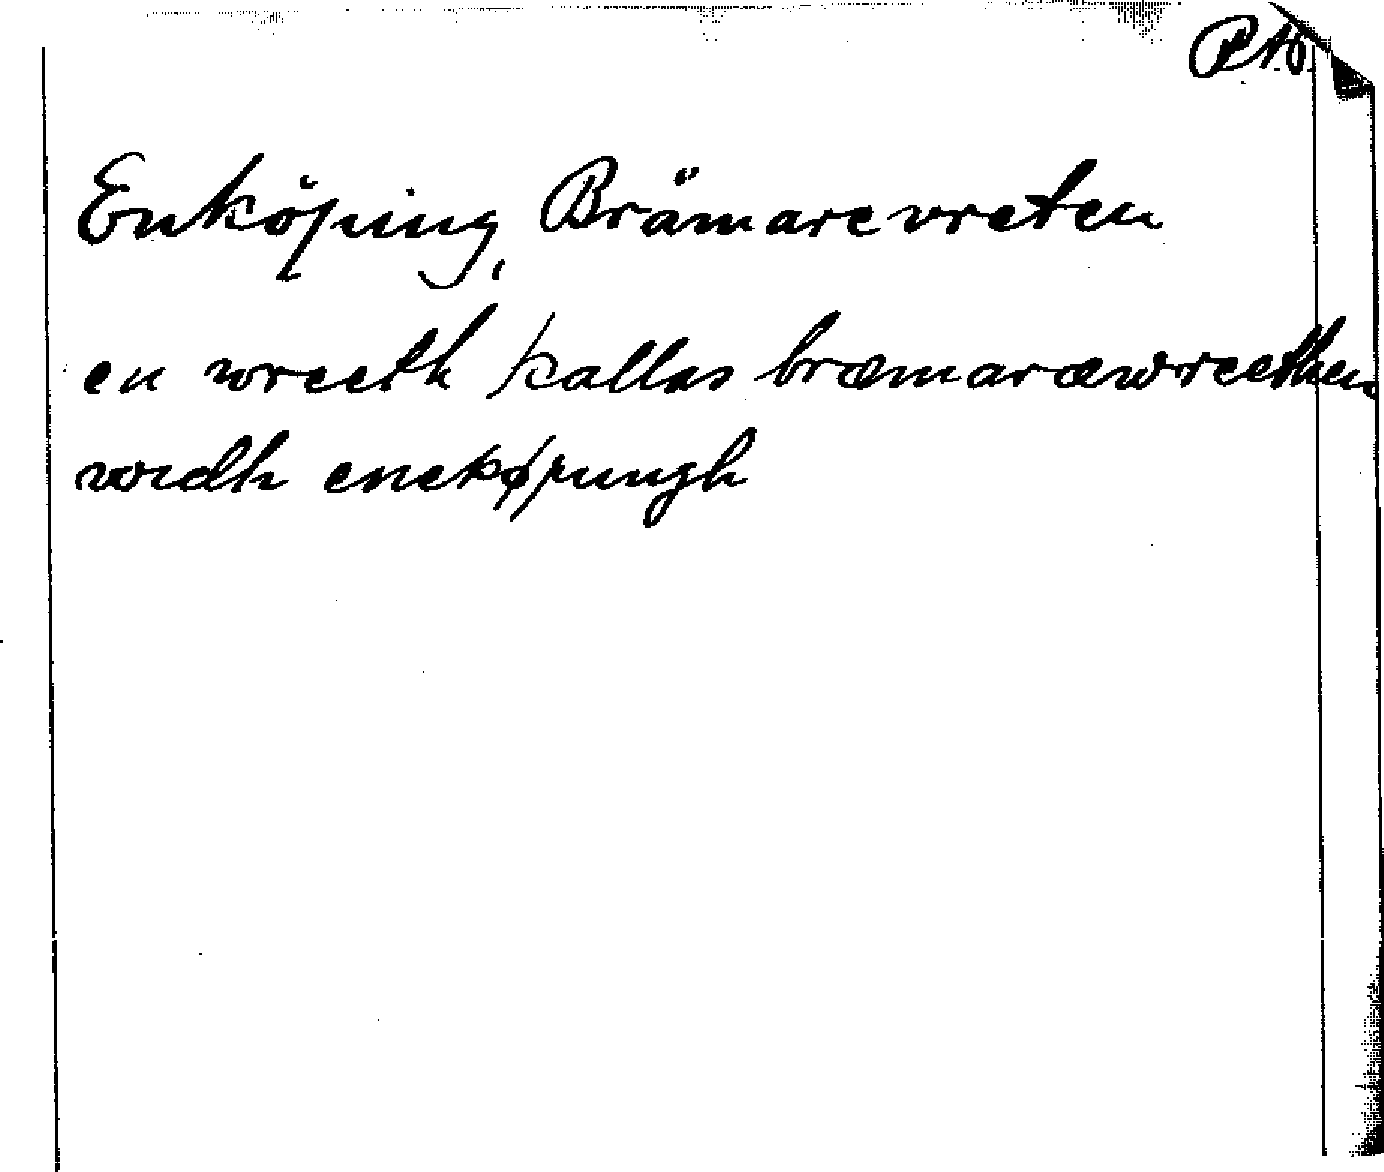 Enköping, Brämarevreten
en wreeth kallas bræmaræwreethen
widh enekøpungh